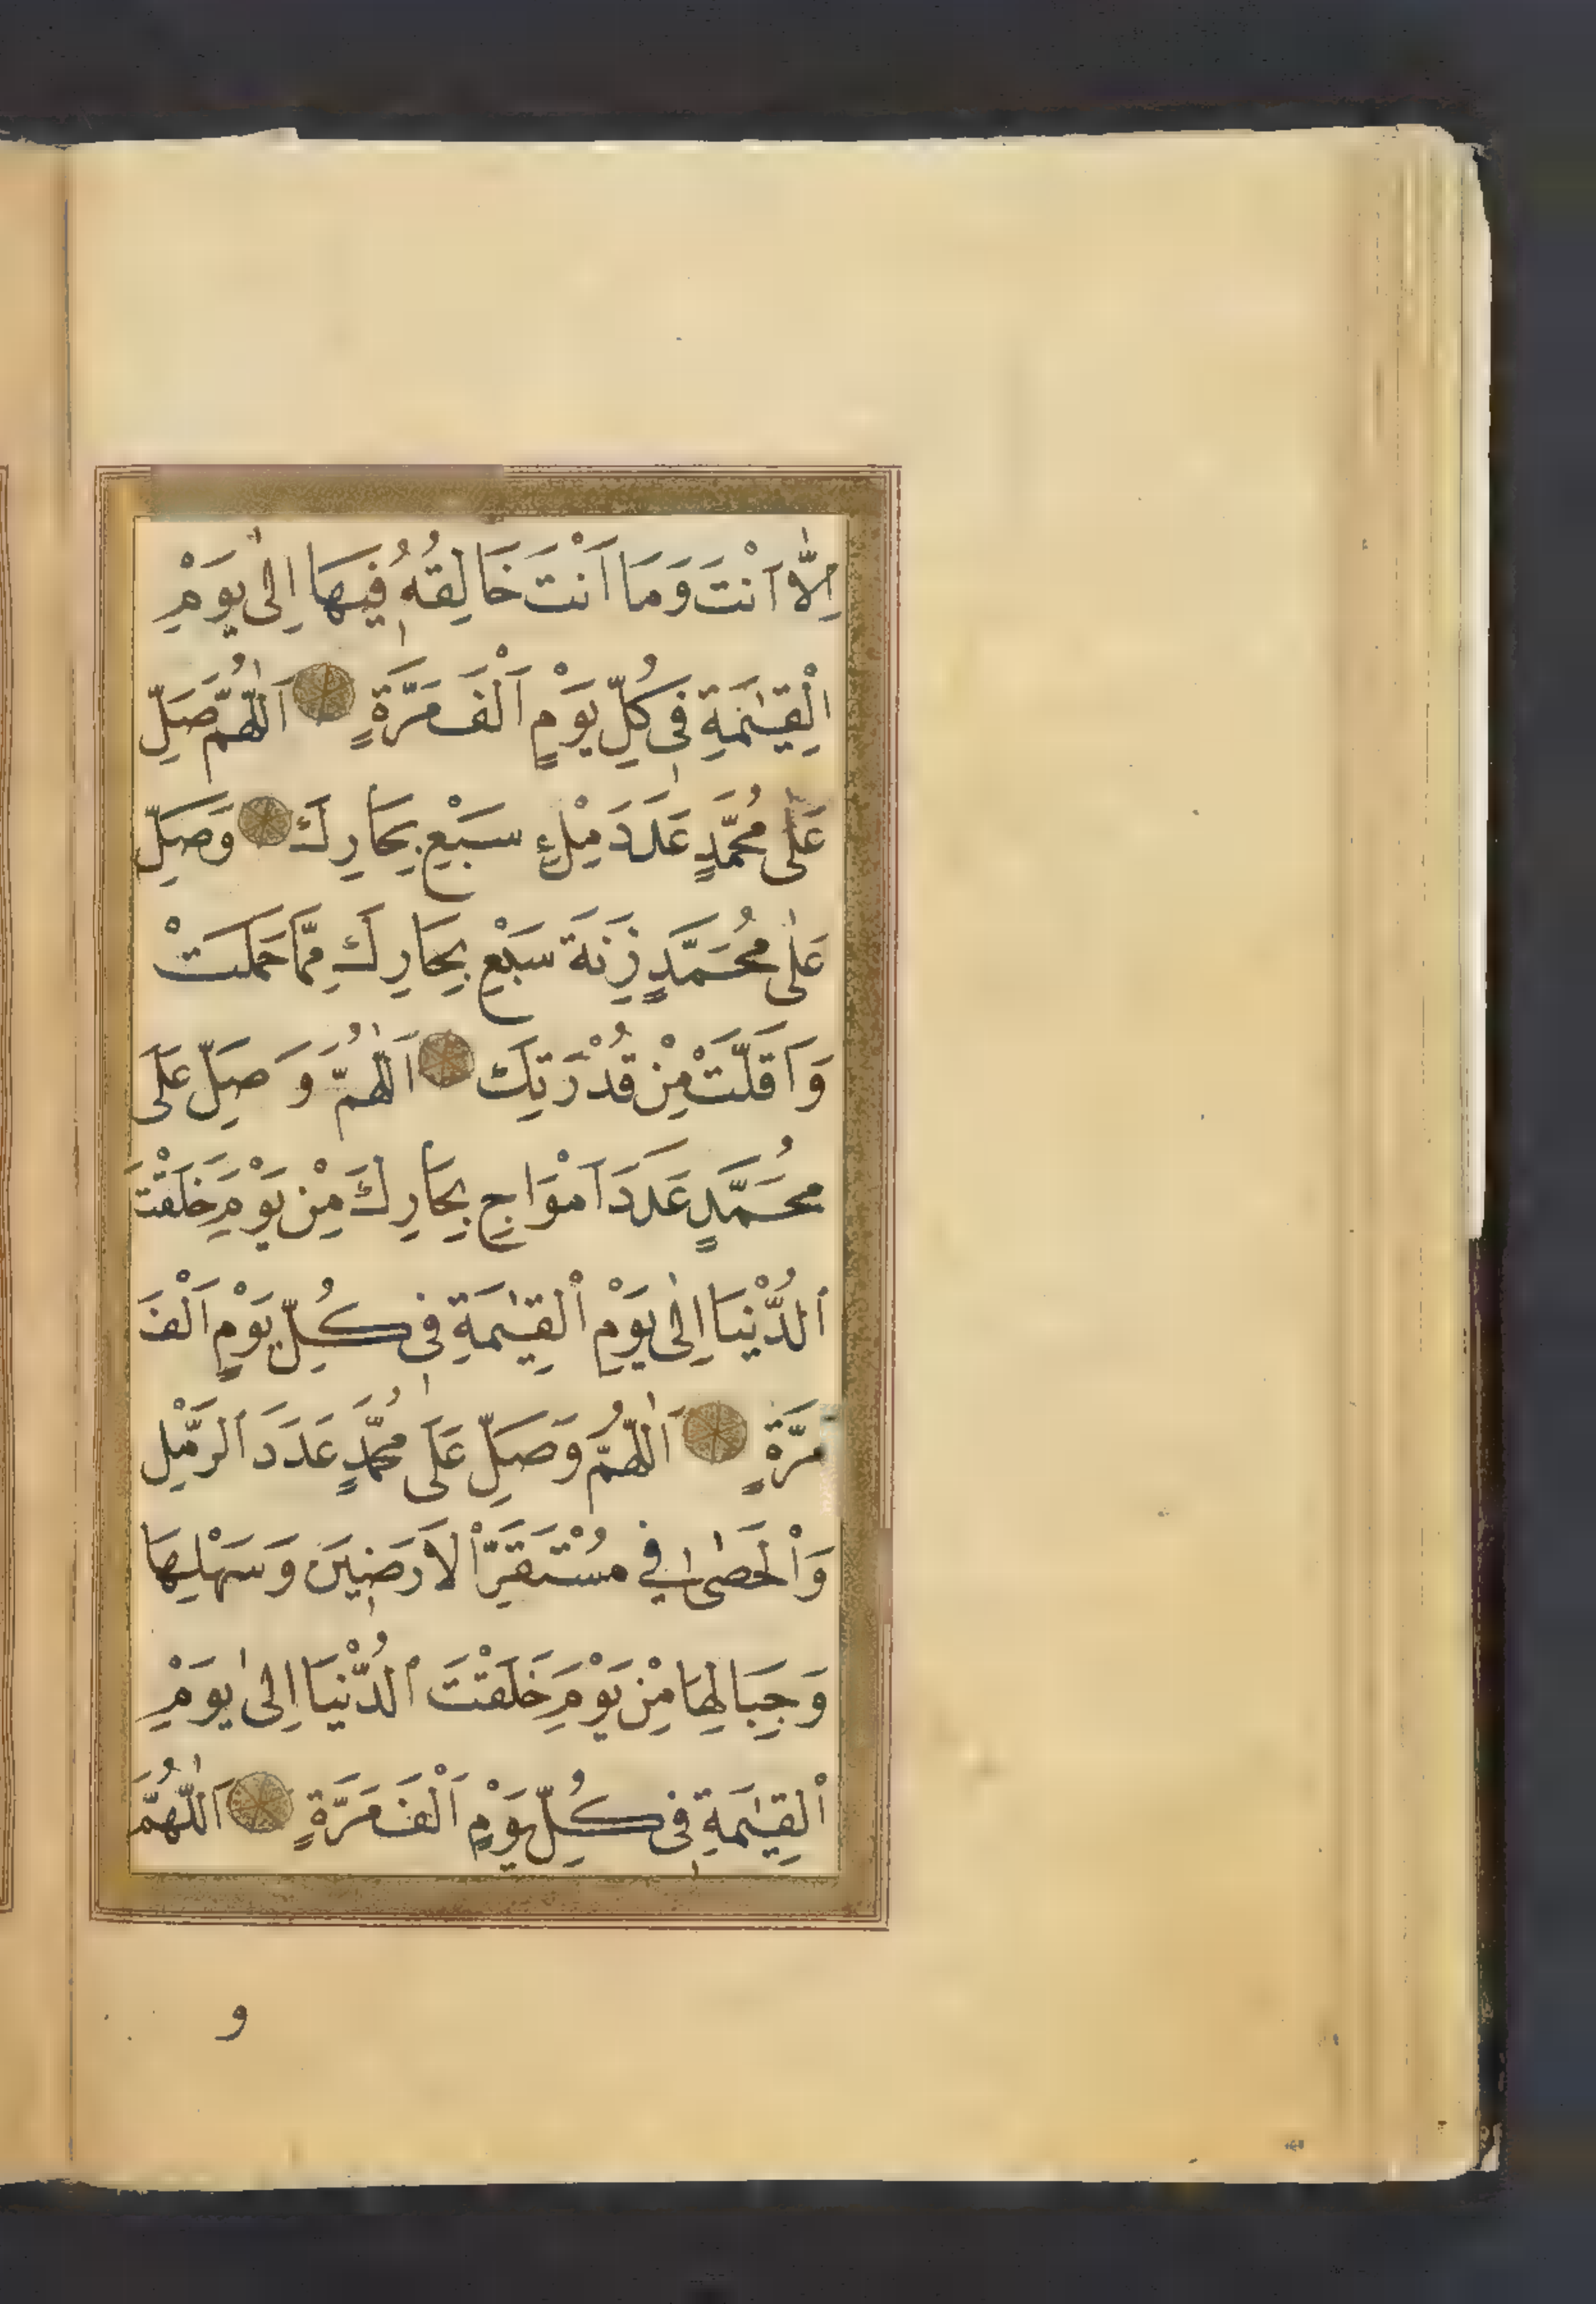 اِلَّا اَنْتَ وَمَا اَنْتَ خَالِقُهُ فِيهَا اِلٰى يَوْمِ
الْقِيٰمَةِ فِى كُلِّ يَوْمٍ اَلْفَ مَرَّةٍ اَللّٰهُمَّ صَلِّ
عَلٰى مُحَمَّدٍ عَدَدَ مِلْءِ سَبْعِ بِحَارِكَ وَصَلِّ
عَلٰى مُحَمَّدٍ زِنَةَ سَبْعِ بِحَارِكَ مِمَّا حَمَلَتْ
وَاَقَلَّتْ مِنْ قُدْرَتِكَ اَللّٰهُمَّ وَصَلِّ عَلَى
مُحَمَّدٍ عَدَدَ اَمْوَاجِ بِحَارِكَ مِنْ يَوْمِ خَلَقْتَ
الدُّنْيَا اِلٰى يَوْمِ الْقِيٰمَةِ فِى كُلِّ يَوْمٍ اَلْفَ
مَرَّةٍ اَللّٰهُمَّ وَصَلِّ عَلَى مُحَمَّدٍ عَدَدَ الرَّمْلِ
وَالْحَصٰى فِي مُسْتَقَرِّ الْاَرَضِينَ وَسَهْلِهَا
وَجِبَالِهَا مِنْ يَوْمِ خَلَقْتَ الدُّنْيَا اِلٰى يَوْمِ
الْقِيٰمَةِ فِى كُلِّ يَوْمٍ اَلْفَ مَرَّةٍ اَللّٰهُمَّ
و